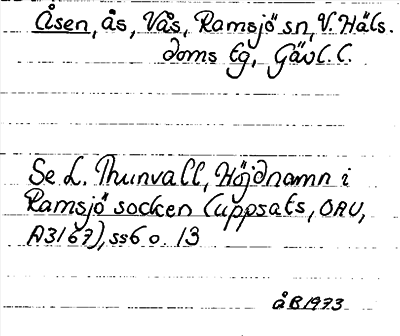 Åsen, ås, Vås, Ramsjö sn, V. Häls.
doms tg, Gävl. l.
Se L. Thunvall, Höjdnamn i
Ramsjö socken (uppsats, OAU,
A3167), ss 6 o. 13
åB1973